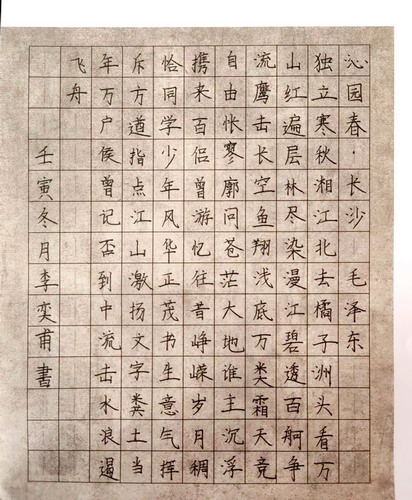 沁园春·长沙 毛泽东
独立寒秋湘江北去橘子洲头看万
山红遍层林尽染漫江碧透百舸争
流鹰击长空鱼翔浅底万类霜天竞
自由怅寥廓问苍茫大地谁主沉浮
携来百侣曾游忆往昔峥嵘岁月稠
恰同学少年风华正茂书生意气挥
斥方道指点江山激扬文字粪土当
年万户侯曾记否到中流击水浪遏
飞舟
壬寅冬月李奕甫書